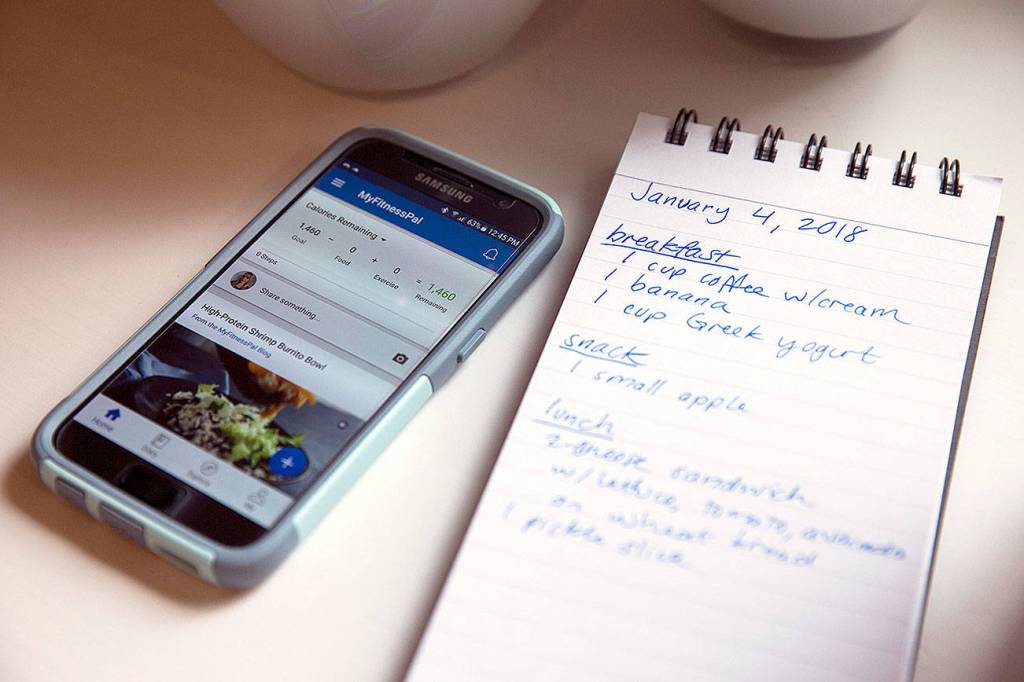 SAMSUNG
63% 12:45 PM
MyFitnessPal
Calories Remaining
1,460 - 0 + 0 = 1,460
Goal Food Exercise Remaining
0 Steps
Share something...
High-Protein Shrimp Burrito Bowl
From the MyFitnessPal Blog
Home Diary Explore Me
January 4, 2018
breakfast
1 cup coffee w/cream
1 banana
1 cup Greek yogurt
snack
1 small apple
lunch
2-cheese sandwich
w/lettuce, tomato, avocado
on wheat bread
1 pickle slice